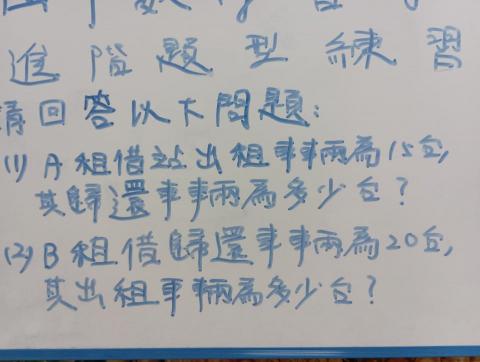 進階題型練習
請回答以下問題:
(1) A租借站出租車輛為15台,
其歸還車輛為多少台?
(2) B租借歸還車輛為20台,
其出租車輛為多少台?